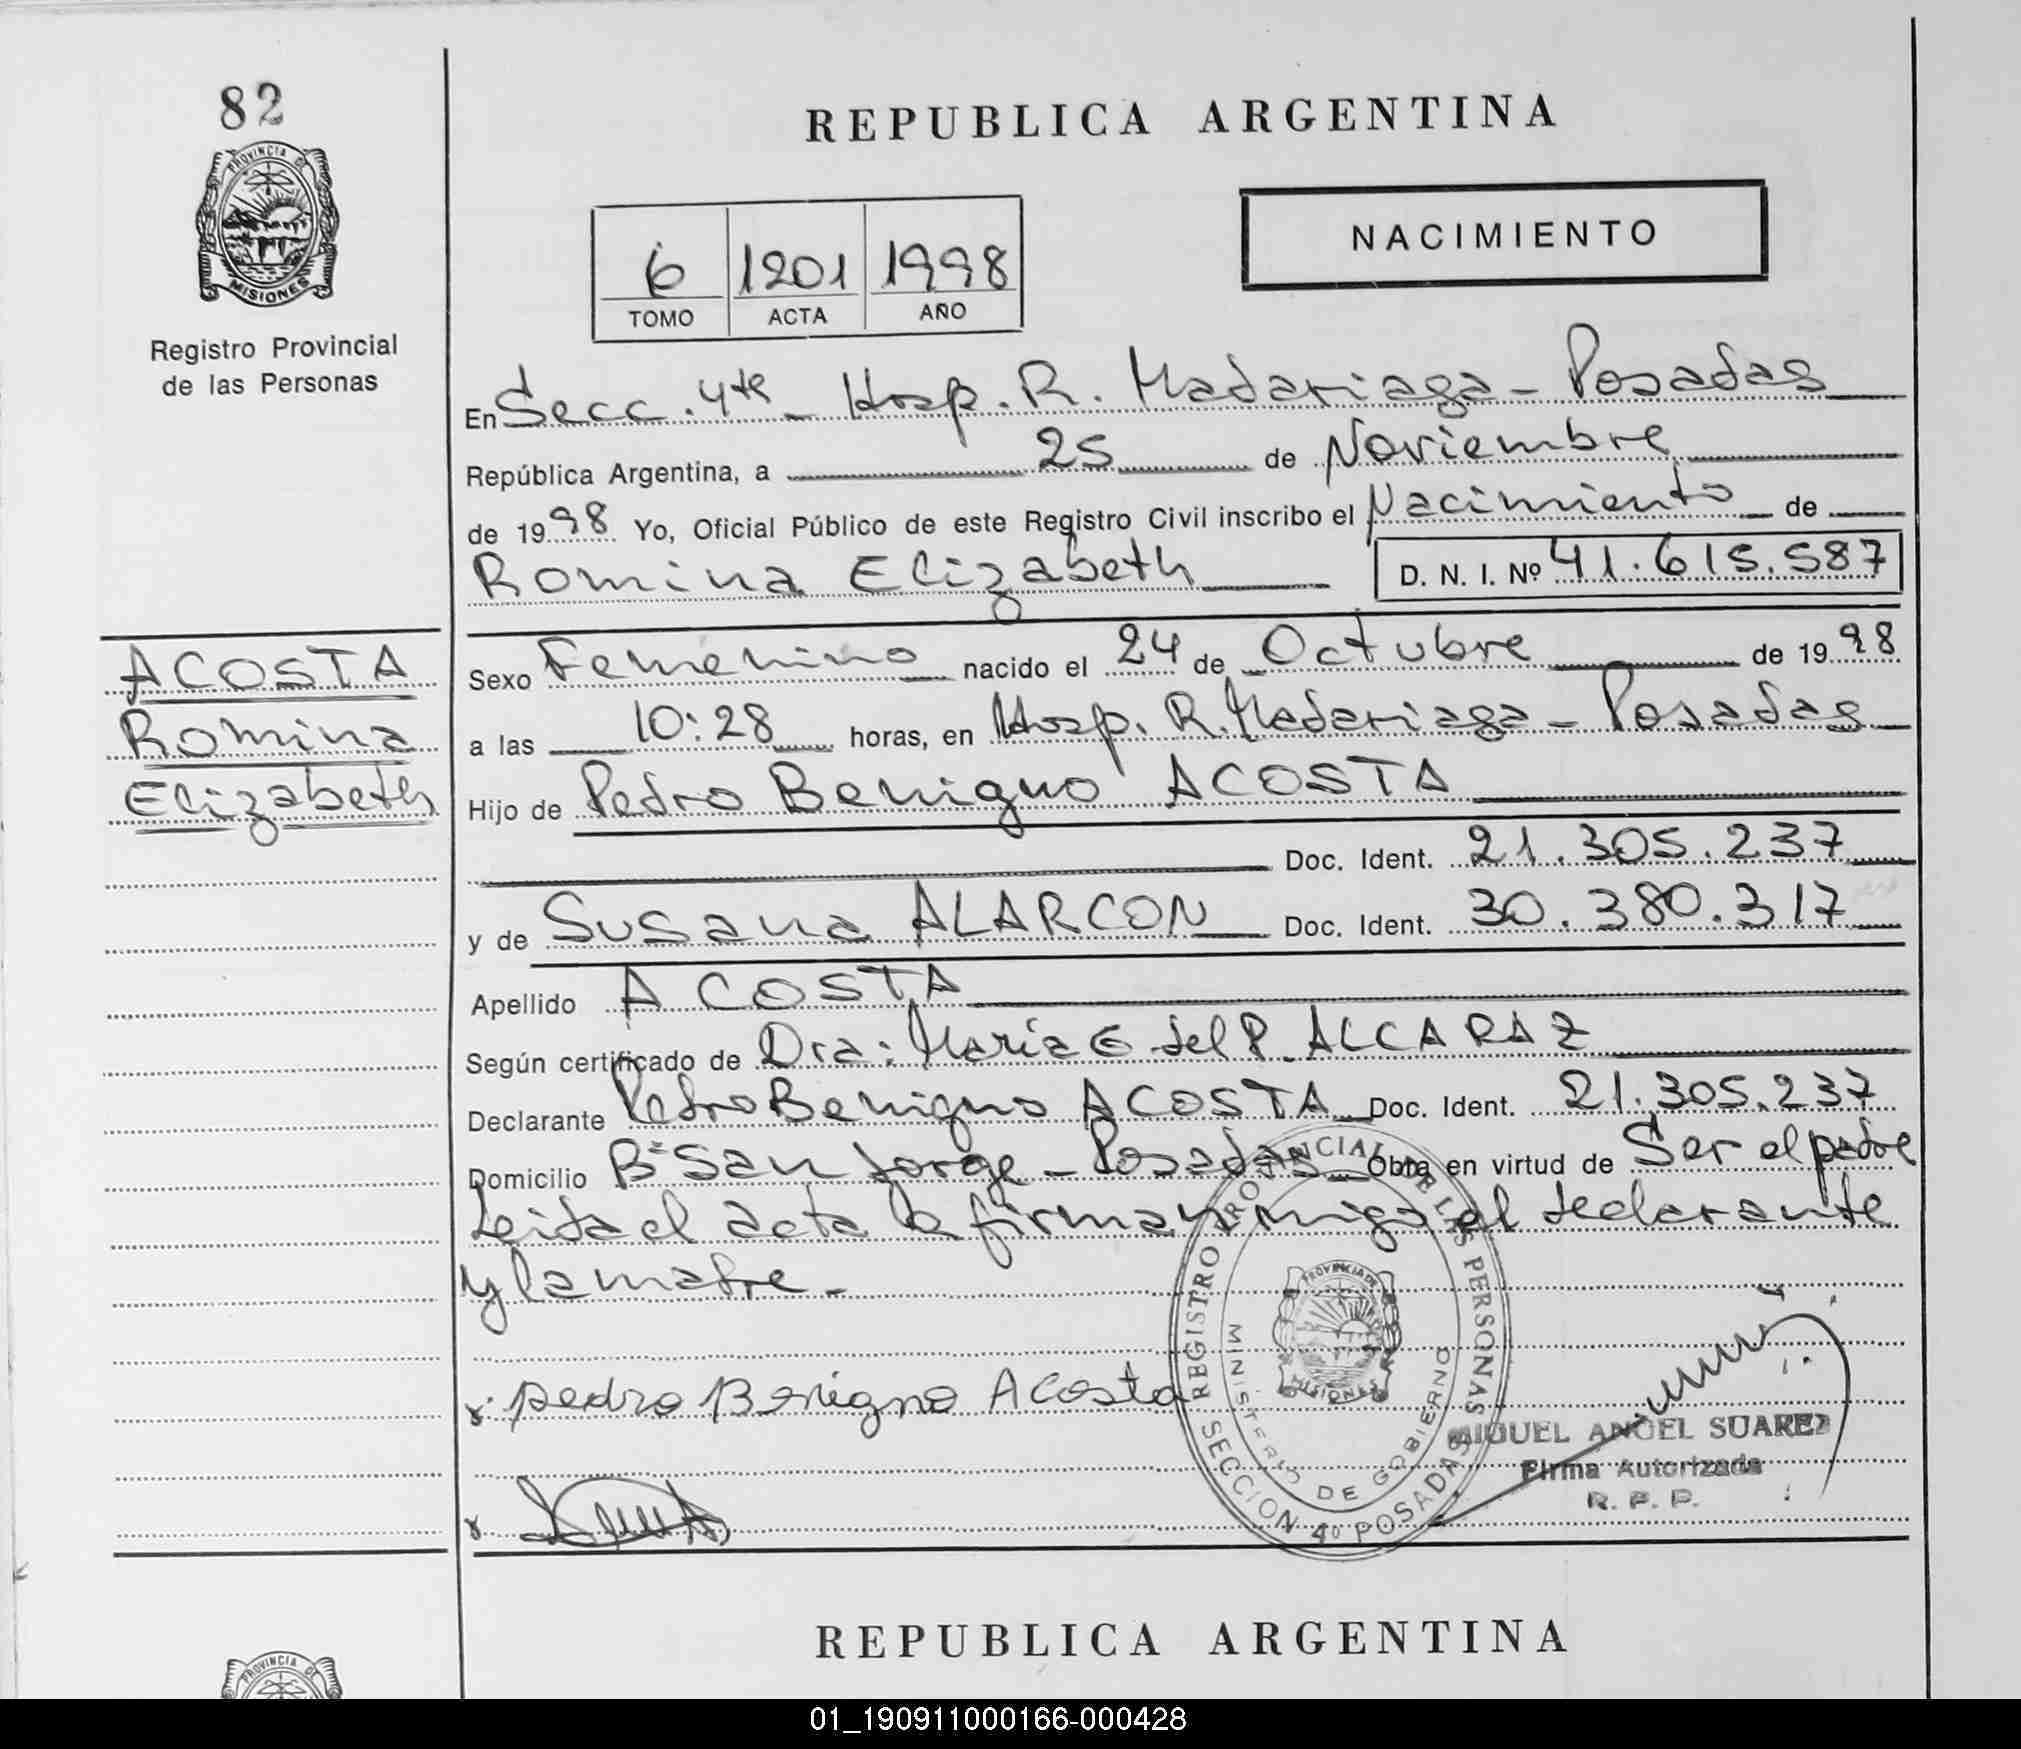 82
REPUBLICA ARGENTINA
PROVINCIA DE
MISIONES
Registro Provincial
de las Personas
6 1201 1998
TOMO ACTA AÑO
NACIMIENTO
En Secc. 4ta - Hosp. R. Madariaga - Posadas
República Argentina, a 25 de Noviembre
de 1998 Yo, Oficial Público de este Registro Civil inscribo el Nacimiento de
Romina Elizabeth D. N. I. Nº 41.615.587
ACOSTA
Romina
Elizabeth
Sexo Femenino nacido el 24 de Octubre de 1998
a las 10:28 horas, en Hosp. R. Madariaga - Posadas
Hijo de Pedro Benigno ACOSTA
Doc. Ident. 21.305.237
y de Susana ALARCON Doc. Ident. 30.380.317
Apellido ACOSTA
Según certificado de Dra: María G del P. ALCARAZ
Declarante Pedro Benigno ACOSTA Doc. Ident. 21.305.237
Domicilio Bº San Jorge - Posadas Obra en virtud de Ser el padre
Leida el acta la firman migo el declarante
y la madre.-
pedro Benigno Acosta
REGISTRO PROVINCIAL DE LAS PERSONAS
SECCION 4º POSADAS
MINISTERIO DE GOBIERNO
PROVINCIA DE
MISIONES
MIGUEL ANGEL SUAREZ
Firma Autorizada
R. P. P.
REPUBLICA ARGENTINA
PROVINCIA DE
01_190911000166-000428